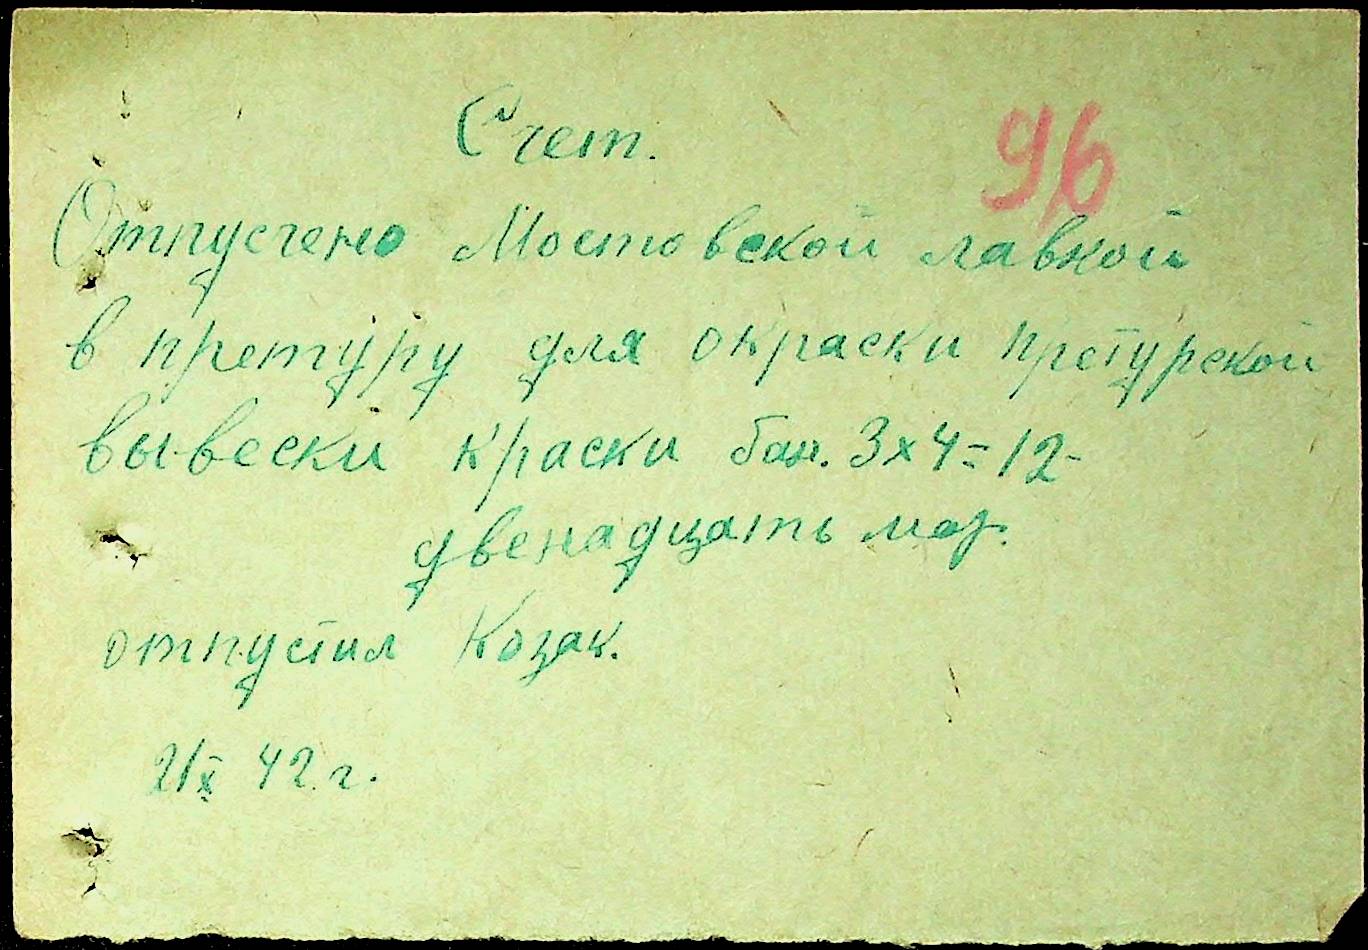 Счет.
96
Отпусчено Мостовской лавкой
в претуру для окраски претурской
вывески краски бан. 3х4=12-
двенадцать мар.
отпустил Козак.
21/X 42 г.